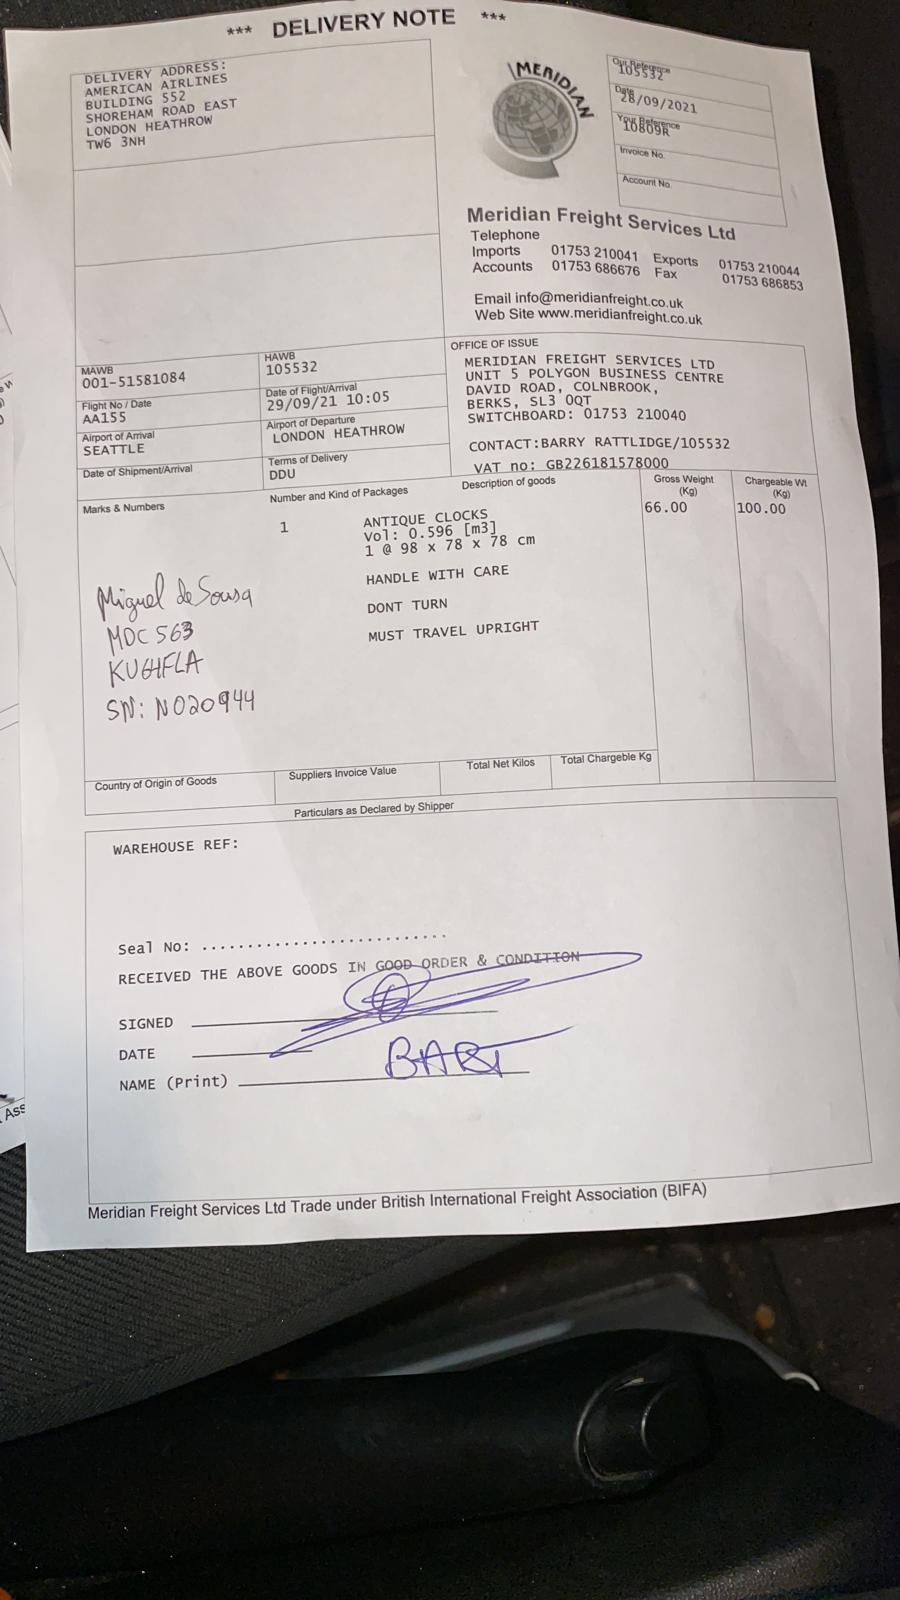 *** DELIVERY NOTE ***
DELIVERY ADDRESS:
AMERICAN AIRLINES
BUILDING 552
SHOREHAM ROAD EAST
LONDON HEATHROW
TW6 3NH
MERIDIAN
Our Reference
105532
Date
28/09/2021
Your Reference
10809R
Invoice No.
Account No.
Meridian Freight Services Ltd
Telephone
Imports 01753 210041 Exports 01753 210044
Accounts 01753 686676 Fax 01753 686853
Email info@meridianfreight.co.uk
Web Site www.meridianfreight.co.uk
MAWB
001-51581084
HAWB
105532
Flight No / Date
AA155
Date of Flight/Arrival
29/09/21 10:05
Airport of Arrival
SEATTLE
Airport of Departure
LONDON HEATHROW
Date of Shipment/Arrival
Terms of Delivery
DDU
OFFICE OF ISSUE
MERIDIAN FREIGHT SERVICES LTD
UNIT 5 POLYGON BUSINESS CENTRE
DAVID ROAD, COLNBROOK,
BERKS, SL3 0QT
SWITCHBOARD: 01753 210040
CONTACT:BARRY RATTLIDGE/105532
VAT no: GB226181578000
Marks & Numbers
Number and Kind of Packages
Description of goods
Gross Weight
(Kg)
Chargeable Wt
(Kg)
1
ANTIQUE CLOCKS
66.00
100.00
Vol: 0.596 [m3]
1 @ 98 x 78 x 78 cm
HANDLE WITH CARE
DONT TURN
MUST TRAVEL UPRIGHT
Miguel de Sousa
MDC 563
SN: N020944
Country of Origin of Goods
Suppliers Invoice Value
Total Net Kilos
Total Chargeble Kg
Particulars as Declared by Shipper
WAREHOUSE REF:
Seal No: ...........................
RECEIVED THE ABOVE GOODS IN GOOD ORDER & CONDITION
SIGNED
DATE
NAME (Print) BART
Meridian Freight Services Ltd Trade under British International Freight Association (BIFA)